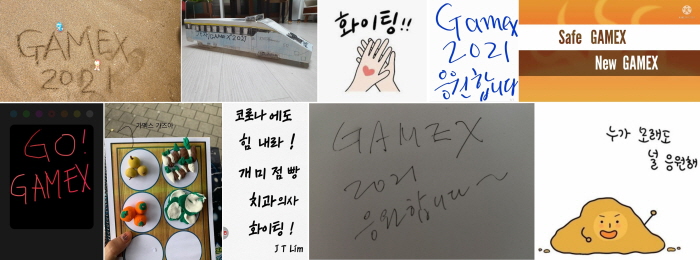 GAMEX
2021
GAMEX 2021
화이팅!!
Gamex
2021
응원합니다
Safe GAMEX
New GAMEX
GO!
GAMEX
코로나에도
힘 내라!
개미점빵
치과의사
화이팅!
J T Lim
GAMEX
2021
응원합니다~
누가 모래도
널 응원해